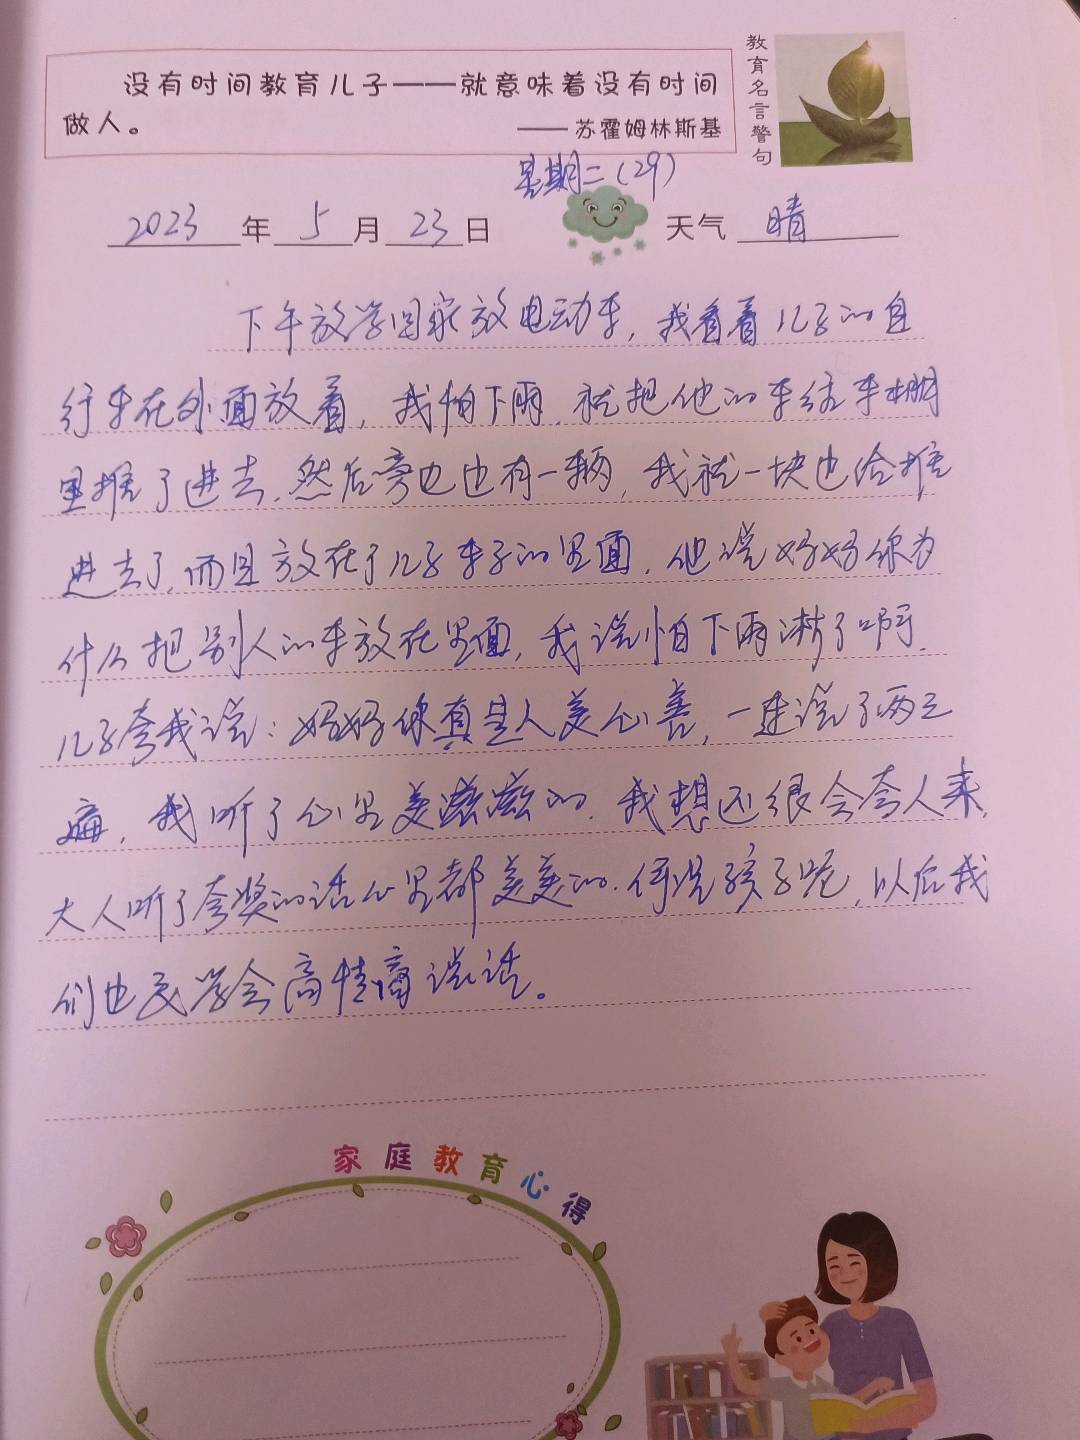 没有时间教育儿子——就意味着没有时间
做人。
—— 苏霍姆林斯基
教育名言警句
星期二（29）
2023 年 5 月 23 日 天气 晴
下午放学回家放电动车，我看着儿子的自
行车在外面放着，我怕下雨，就把他的车往车棚
里推了进去，然后旁边也有一辆，我就一块也给推
进去了，而且放在了儿子车子的里面，他说妈妈你为
什么把别人的车放在里面，我说怕下雨淋了啊，
儿子夸我说：妈妈你真是人美心善，一连说了两三
遍，我听了心里美滋滋的，我想还很会夸人来，
大人听了夸奖的话心里都美美的，何况孩子呢，以后我
们也要学会高情商说话。
家庭教育心得